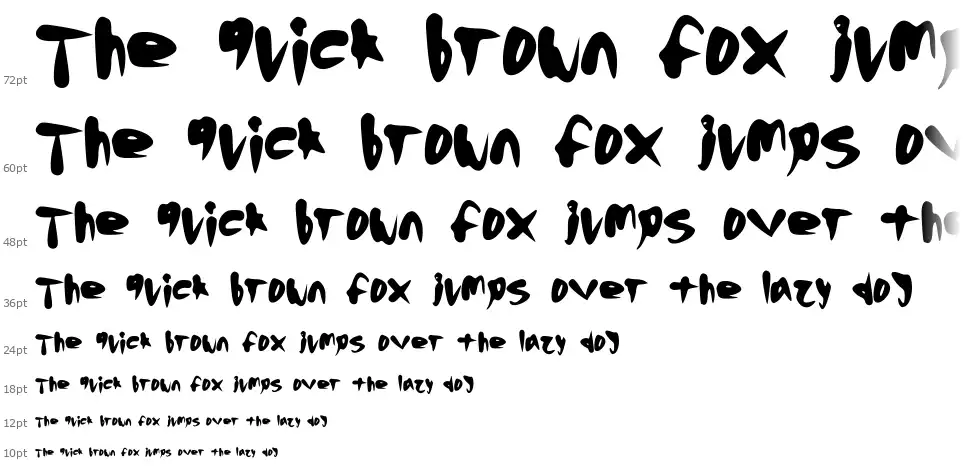 72pt The quick brown fox jump
60pt The quick brown fox jumps ov
48pt The quick brown fox jumps over the
36pt The quick brown fox jumps over the lazy dog
24pt The quick brown fox jumps over the lazy dog
18pt The quick brown fox jumps over the lazy dog
12pt The quick brown fox jumps over the lazy dog
10pt The quick brown fox jumps over the lazy dog